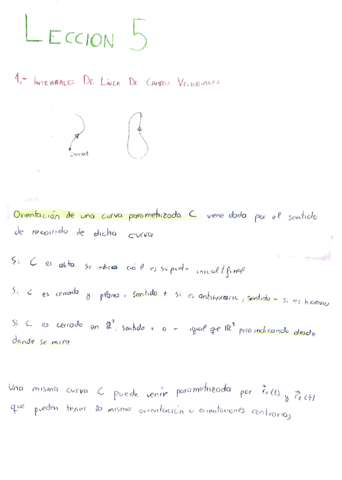 LECCION 5
1.- INTEGRALES DE LÍNEA DE CAMPOS VECTORIALES
Orientación de una curva parametrizada C viene dada por el sentido
de recorrido de dicha curva
Si C es abierta se indica cuál es su punto inicial/final
Si C es cerrada y plana, sentido + si es antihorario, sentido - si es horario
Si C es cerrada en ℝ³, sentido + o - igual que ℝ² pero indicando desde
donde se mira
Una misma curva C puede venir parametrizada por r⃗₁(t) y r⃗₂(t)
que pueden tener la misma orientación u orientaciones contrarias